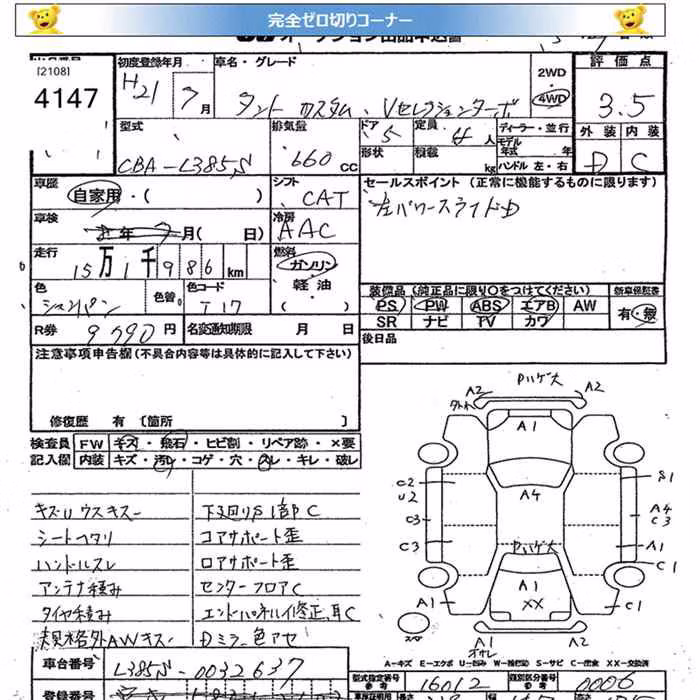 完全ゼロ切りコーナー
[2108]
4147
初度登録年月
H21 7月
車名・グレード
タント カスタム Vセレクションターボ
2WD
4WD
評価点
3.5
外装 内装
D C
型式
CBA-L385S
排気量
660 CC
ドア 5
形状
定員 4人
積載 kg
ディーラー・並行
モデル年式 年
ハンドル 左・右
車歴
自家用・( )
シフト
CAT
セールスポイント (正常に機能するものに限ります)
左パワースライドD
車検
年 7月( 日)
冷房
AAC
走行
15万1千986km
燃料
ガソリン・軽油
( )
色
シャンパン
色替
色コード
T17
装備品(純正品に限り〇をつけてください)
新車保証書
PS PW ABS エアB AW
SR ナビ TV カワ
有・無
R券 9790円
名変通知期限 月 日
後日品
注意事項申告欄(不具合内容等は具体的に記入して下さい)
修復歴 有 [箇所 ]
検査員記入欄
FW キズ・飛石・ヒビ割・リペア跡・×要
内装 キズ・汚れ・コゲ・穴・スレ・キレ・破レ
キズUウスキズー
下廻りS1部C
シートヘタリ
コアサポート歪
ハンドルスレ
ロアサポート歪
アンテナ積み
センターフロアC
タイヤ積み
エンドパネル修正、耳C
規格外AWキズー
Dミラー色アセ
Pハゲ大
A2 A2
A1
C2
U2
S1
A4
C3
A4
C3
C3
Pハゲ大
A1
C1
A1
XX
A1
C1
A1 A2
A-キズ E-エクボ U-凹み W-補修跡 S-サビ C-腐食 XX-交換済
車台番号
L385S-0032637
型式指定番号
参考
16012
類別区分番号
参考
0006
登録番号